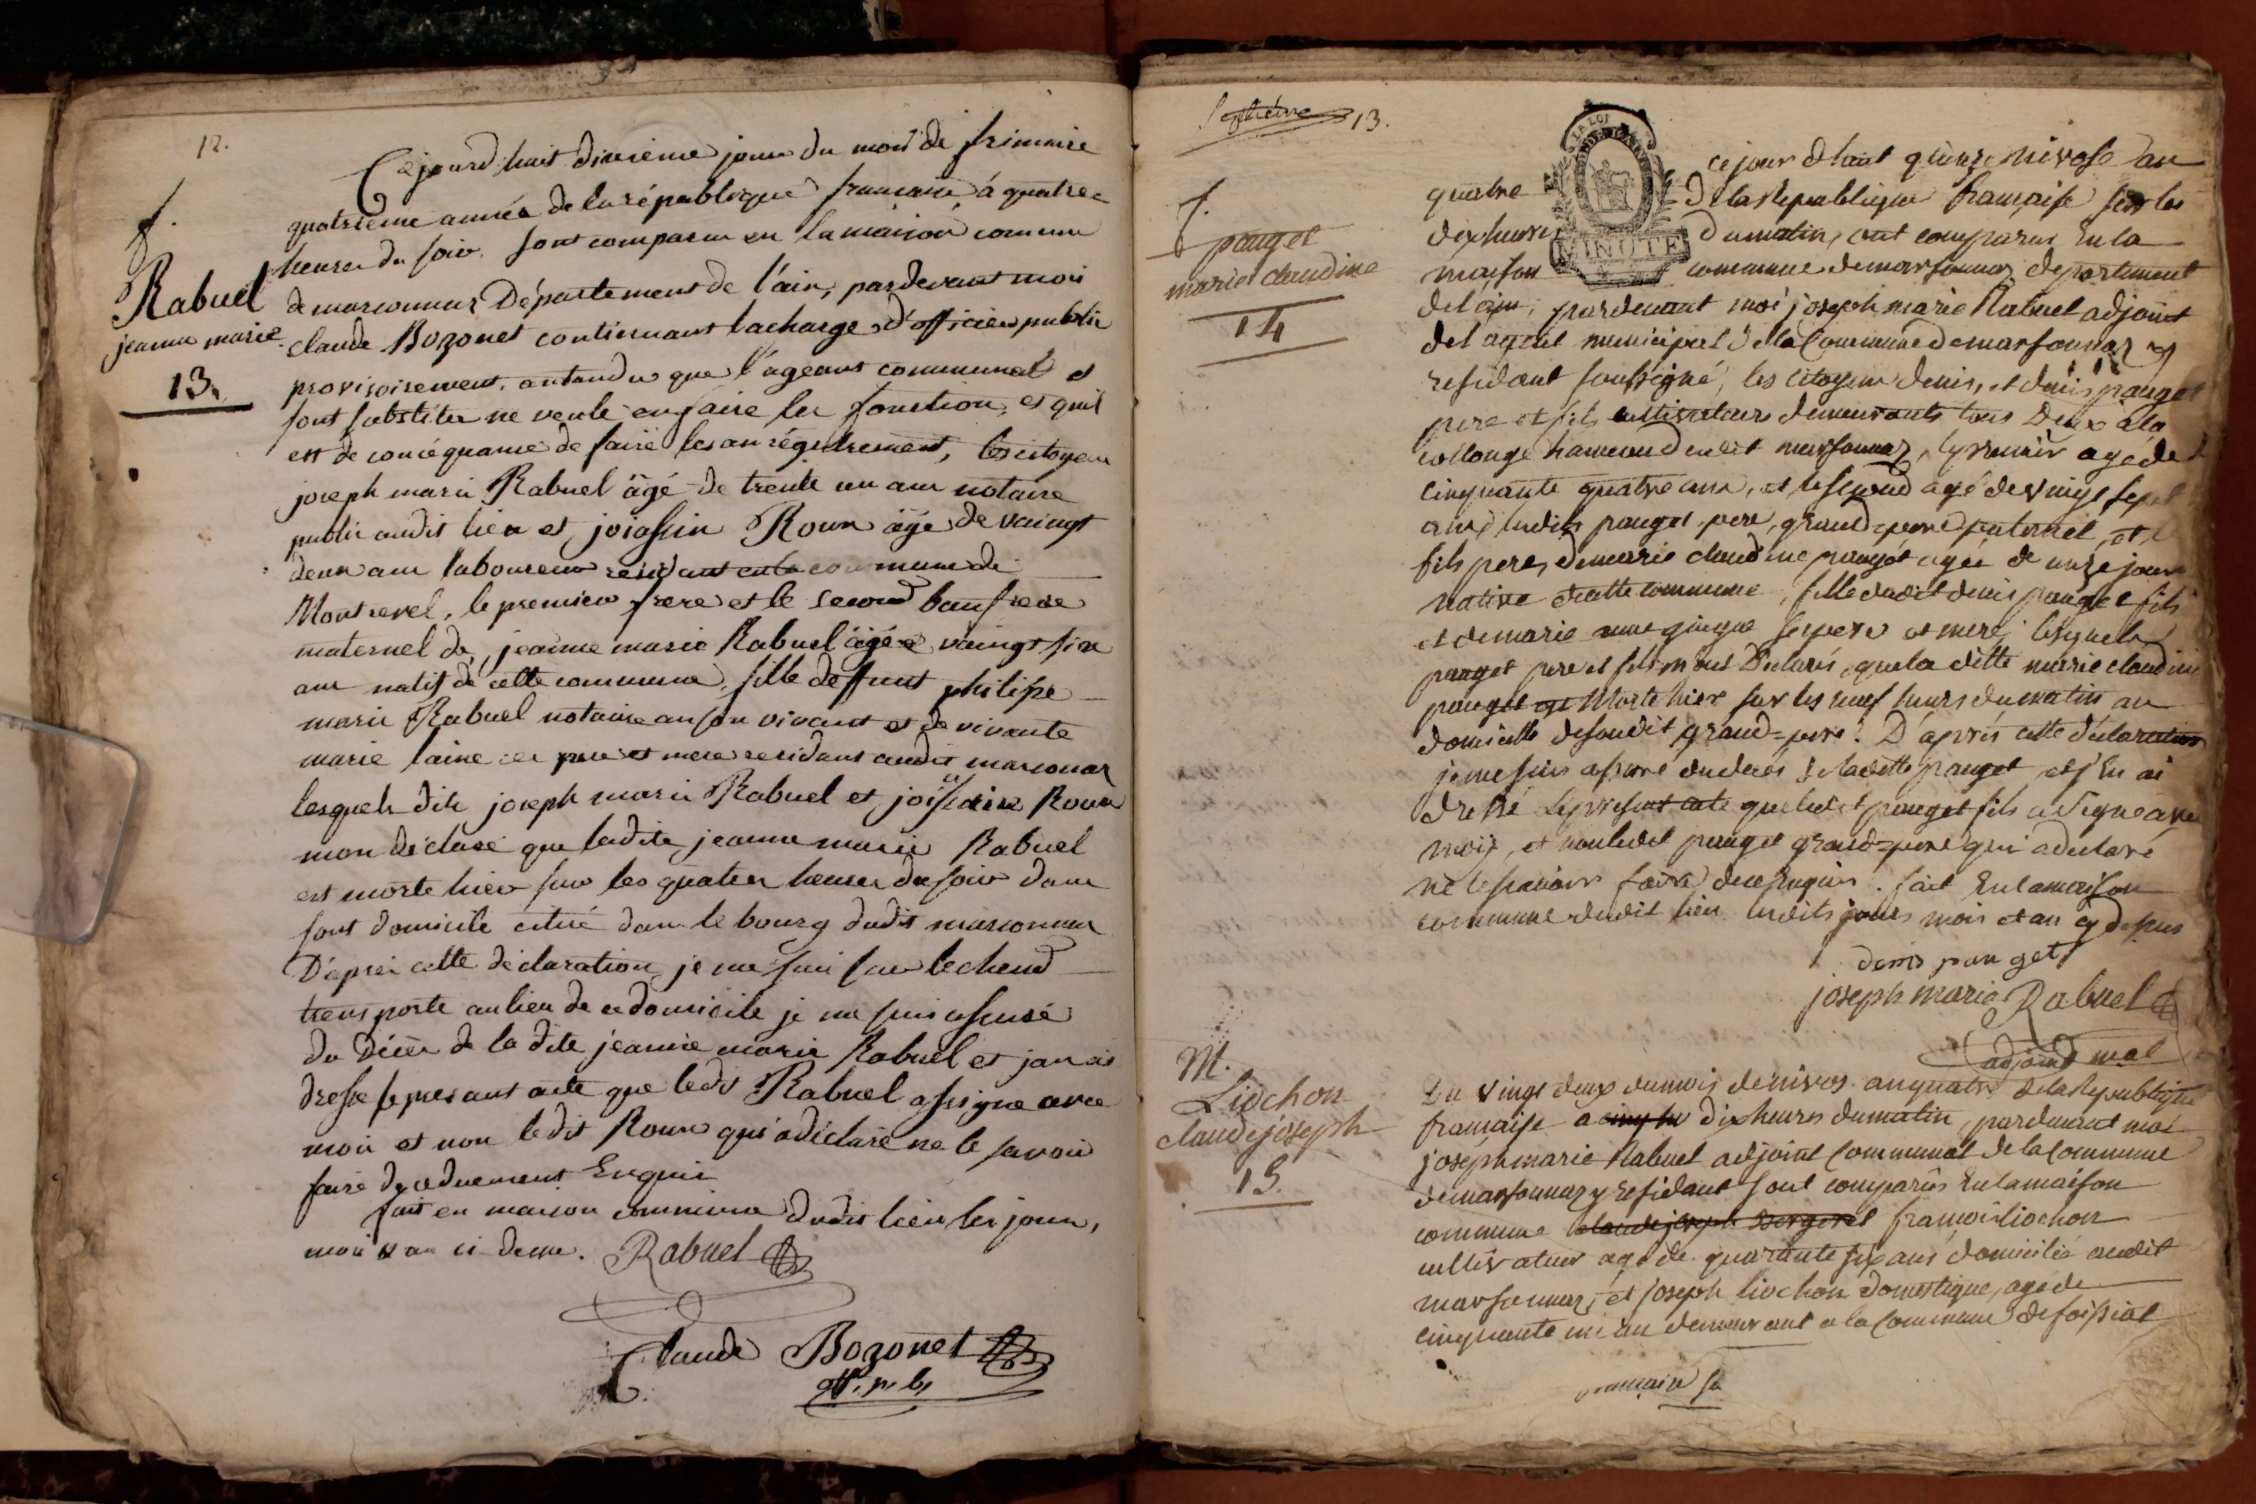 12.
f.
Rabuel
jeanne marie.
13.
Cejourd'huit dixieme jour du mois de frimaire
quatrieme année de la république francaise, á quatre
heures du soir, sont comparu en la maison commune
de marsonnas Département de l'ain, pardevant moi
claude Bozonet continuant la charge d'officier public
provisoirement, antandu que l'ageant communal et
sont substitu ne veule en faire les fonction, et quil
est de conséquance de faire les anrégitrement, les citoyen
joseph marie Rabuel âgé de trente un ans notaire
public audit lieu et joiassin Roux âgé de vaingt
deux ans laboureur résidant en la commune de
Montrevel, le premier frere et le second baufrere
maternel de, jeanne marie Rabuel âgée vaingt six
ans natif de cette commune, fille deffunt philipe
marie Rabuel notaire an son vivant et de vivante
marie laine ses pere et mere residans audit marsonnas
lesquels dits joseph marie Rabuel et Roux
mon déclaré que ladite jeanne marie Rabuel
est morte hier sur les quatre heures du soir dans
sont domicile citué dans le bourg dudit marsonnas
D'aprei cette déclaration je me suis sur le chand
transporte au lieu de ce domicile je me suis assuré
du Décès de la dite jeanne marie Rabuel et jan ai
dressé le presant acte que ledit Rabuel a signe avec
moi et non ledit Roux qui a déclaré ne le savoir
faire de ce duement Enquis
fait en maison commune dudit lieu les jour,
mois et an ci-dessus. Rabuel
Claude Bozonet
off. p. b.
13.
f.
pauget
marie claudine
14
MINUTE
ce jour d'huit quinze nivose an
quatre de la Republique française sur les
dix heures du matin, sont comparus En la
maison commune de marsonnas departement
de l'ain, pardevant moi joseph marie Rabuel adjoint
de l'agent municipal de la Commune de marsonnas y
residant soussigné, les citoyens denis, et denis pauget
pere et fils cultivateurs demeurants tous Deux à la
collonge hameau dudit marsonnas, le premier agé de
cinquante quatre ans, et le second agé de vingt sept
ans, lesdits pauget pere, grand-pere paternel, et
fils pere, de marie claudine pauget agée de onze jours
native de cette commune, fille dudit denis pauget fils
et de marie anne ses pere et mere; lesquels
pauget pere et fils m'ont Déclaré, que la ditte marie claudine
pauget est Morte hier sur les neuf heures du matin au
domicille de sondit grand-pere. D'après cette déclaration
je me suis assuré du deces de ladette pauget et j'En ai
dressé le present acte que ledit pauget fils a signé avec
moi, et non ledit pauget grand-pere qui a declaré
ne le savoir faire, de ce Enquis. fait En la maison
commune dudit lieu lesdits jours mois et an cy dessus
denis pauget
joseph marie Rabuel
adjoint mal
M.
Liochon
claude joseph
15.
Du vingt deux du mois de nivos an quatre de la Republique
française a dix heures du matin, pardevant moi
joseph marie Rabuel adjoint communal de la Commune
de marsonnas y residant sont comparûs En la maison
commune claude joseph françois liochon
cultivateur agé de quarante six ans domicilié audit
marsonnas, et joseph liochon domestique, agé de
cinquante un an demeurant a la Commune de foissiat